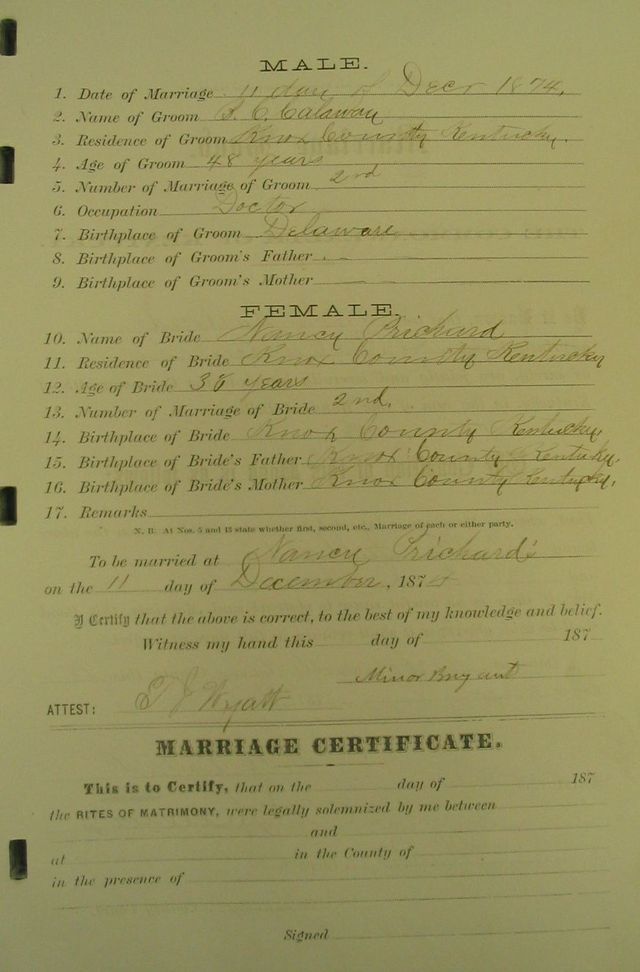 MALE.
1. Date of Marriage 11 day of Decr 1874.
2. Name of Groom S. C. Calaway
3. Residence of Groom Knox County Kentucky.
4. Age of Groom 48 years
5. Number of Marriage of Groom 2nd
6. Occupation Doctor
7. Birthplace of Groom Delaware
8. Birthplace of Groom's Father
9. Birthplace of Groom's Mother
FEMALE.
10. Name of Bride Nancy Prichard
11. Residence of Bride Knox County Kentucky
12. Age of Bride years
13. Number of Marriage of Bride 2nd.
14. Birthplace of Bride Knox County Kentucky,
15. Birthplace of Bride's Father Knox County Kentucky.
16. Birthplace of Bride's Mother Knox County Kentucky,
17. Remarks
N. B. At Nos. 5 and 13 state whether first, second, etc., Marriage of each or either party.
To be married at Nancy Prichard's
on the 11 day of December, 1874
I Certify that the above is correct, to the best of my knowledge and belief.
Witness my hand this day of 187
Minor Bryant
ATTEST: T J Wyatt
MARRIAGE CERTIFICATE.
This is to Certify, that on the day of 187
the RITES OF MATRIMONY, were legally solemnized by me between
and
at in the County of
in the presence of
Signed